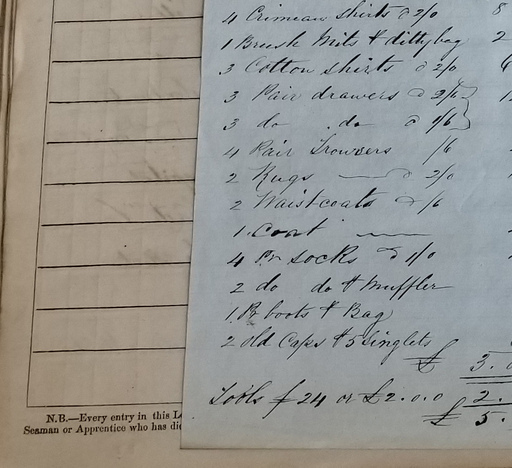 4 Crimean shirts @ 2/0 8
1 Brush Mits & dittybag 2
3 Cotton shirts @ 2/0
3 Pair drawers @ 2/6
3 do do @ 1/6
4 Pair Trowsers /6
2 Rugs @ 2/0
2 Waistcoats @ /6
1 Coat
4 Pr socks @ 1/0
2 do do & muffler
1 Pr boots & Bag
2 old Caps & 5 singlets
£ 3.0
24 or £2.0.0 2.
£ 5.
N.B.—Every entry in this
Seaman or Apprentice who has